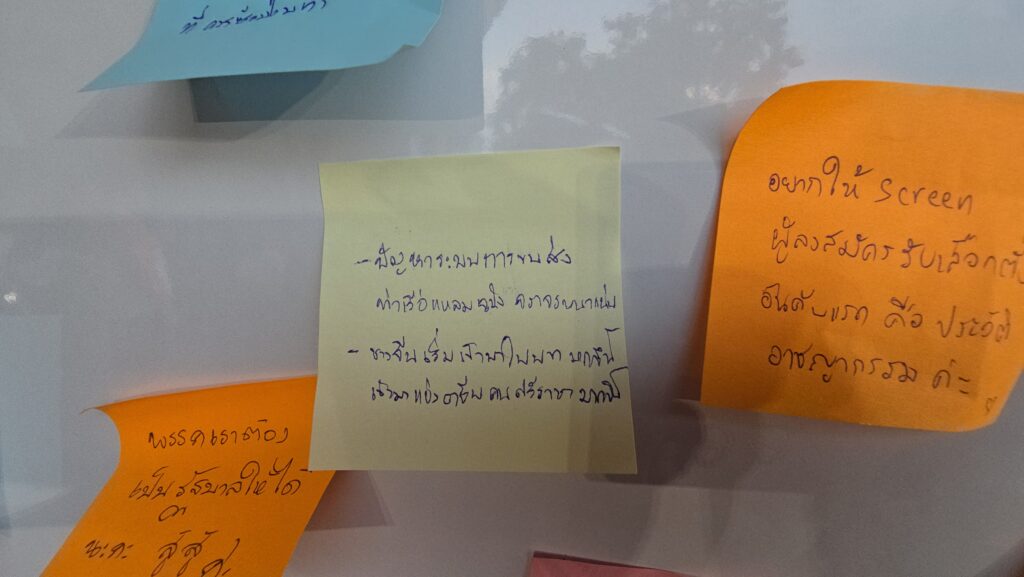 ที่ควร
- ปัญหาระบบการขนส่ง
ท่าเรือแหลมฉบัง จราจรหนาแน่น
- ชาวจีนเริ่มเข้ามาในบทบาทมากขึ้น
เข้ามาแย่งอาชีพคนศรีราชามากขึ้น
อยากให้ Screen
ผู้ลงสมัครรับเลือกตั้ง
อันดับแรก คือ ประวัติ
อาชญากรรม ค่ะ
พรรคเราต้อง
เป็นรัฐบาลให้ได้
นะคะ สู้สู้
ค่ะ